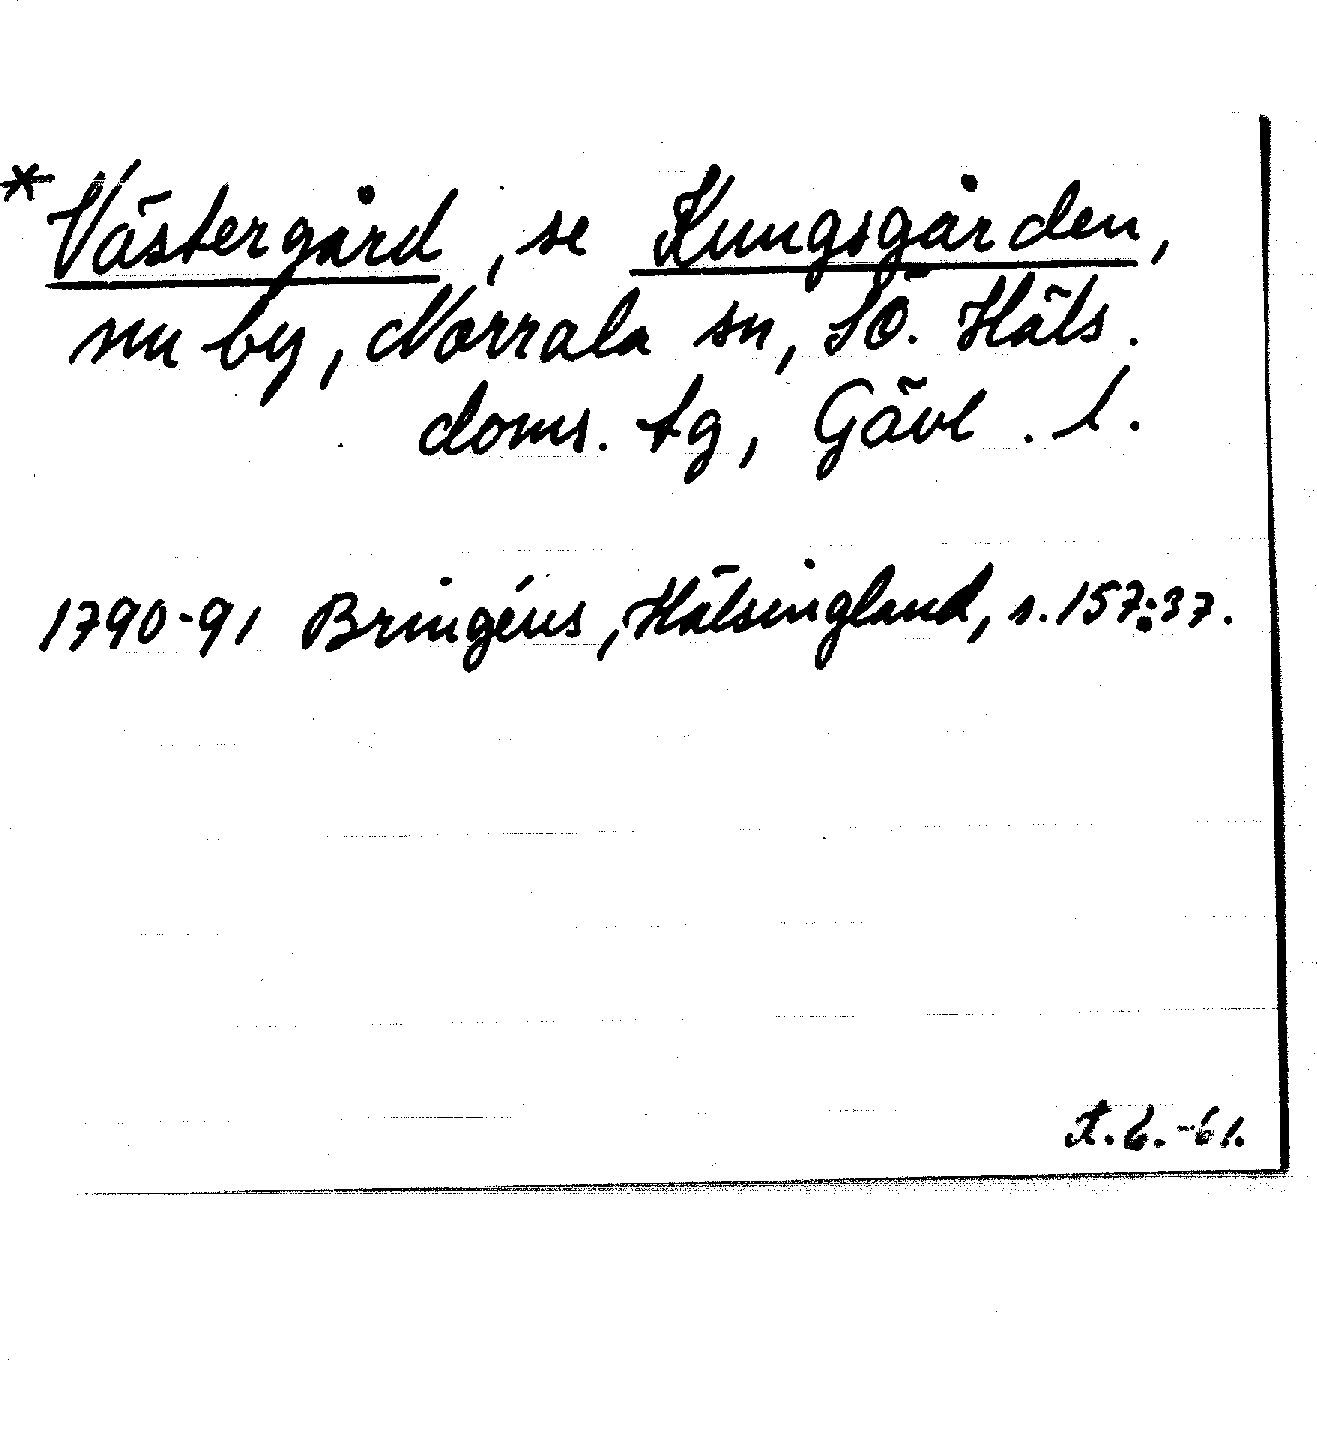 * Västergård, se Kungsgården,
nu by, Norrala sn, Sö. Häls.
doms. tg, Gävl. l.
1790-91 Bringéus, Hälsingland, s. 157:37.
t.6.-61.